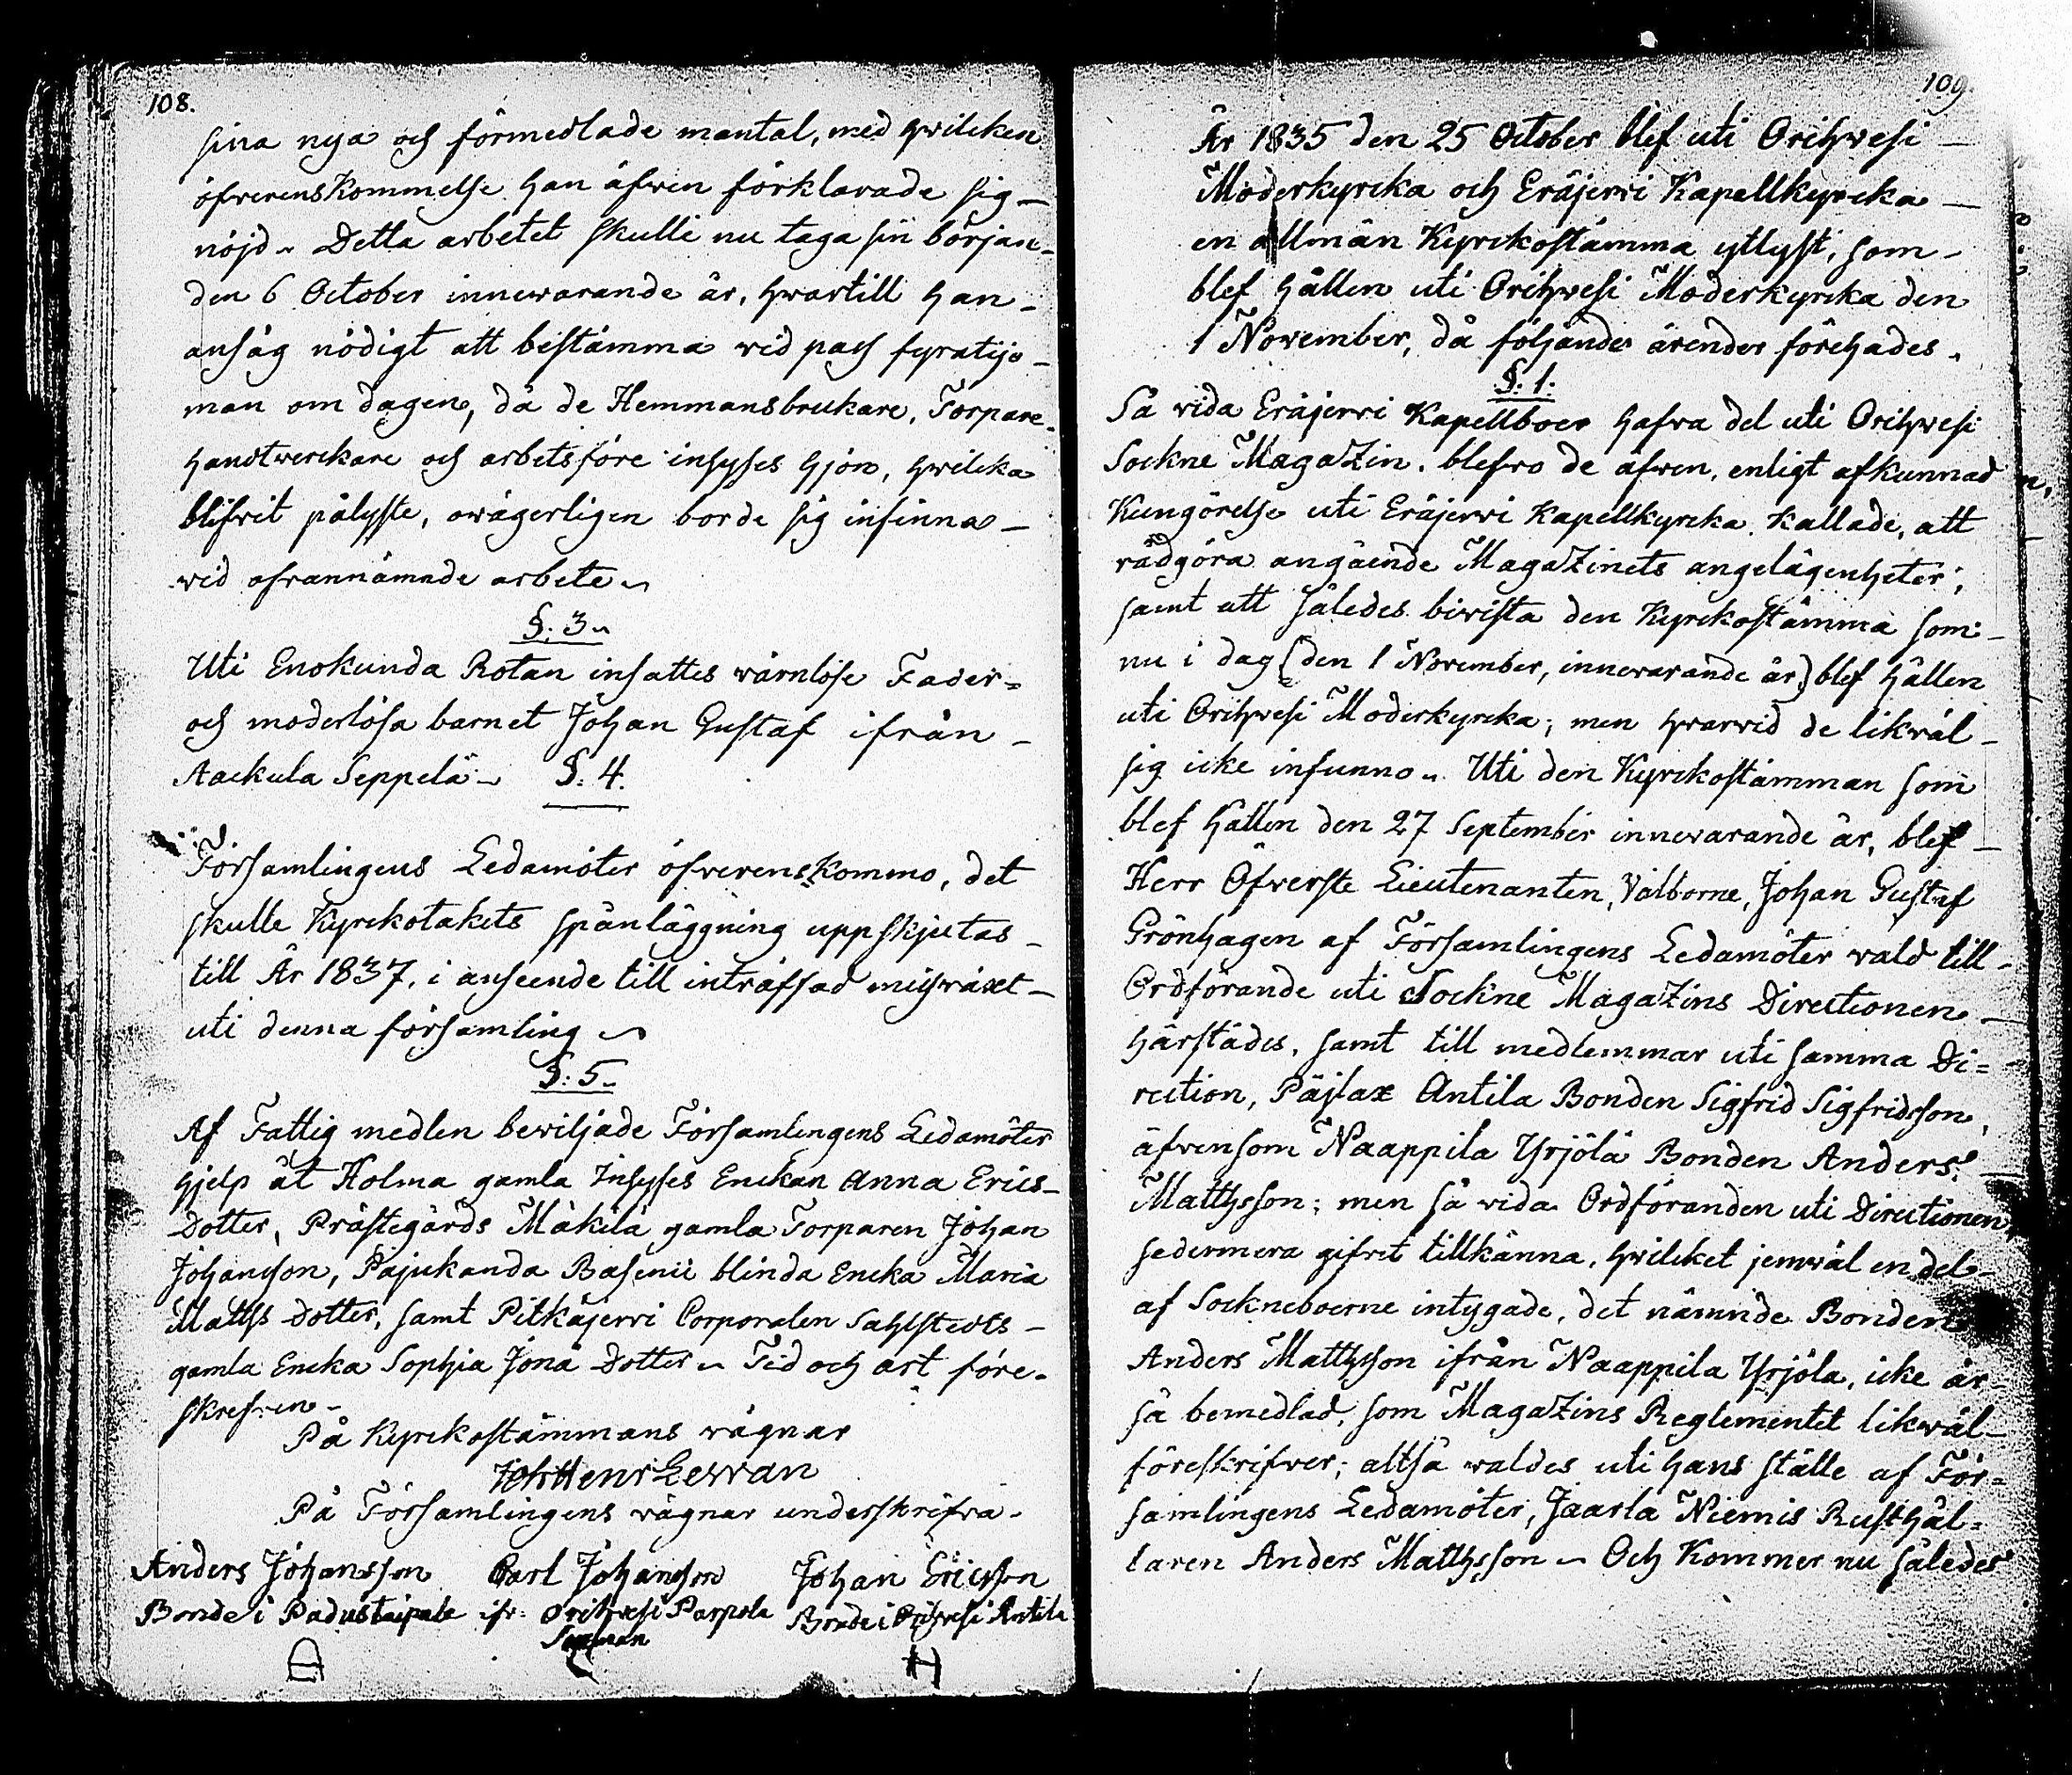 108.
sina nya och förmedlade mantal, med hvilcken
öfverenskommelse han äfven förklarade sig
nöjd. Detta arbetet skulle nu taga sin början
den 6 October innewarande år, hvartill han
ansåg nödigt att bestämma wid pass fyratijo
man om dagen, då de Hemmansbrukare, Torpare,
handtverckare och arbetsföre inhyses hjon, hvilcka
blifvit pålyste, owägerligen borde sig infinna
wid ofvannämnde arbete.
§. 3.
Uti Enokunda Rotan insattes wärnlöse Fader=
och moderlösa barnet Johan Gustaf ifrån
Aackula Seppelä. §. 4.
Församlingens Ledamöter öfverenskommo, det
skulle Kyrckotakets spånläggning uppskjutas
till År 1837, i anseende till inträffad missväxt
uti denna församling.
§. 5.
Af Fattig medlen beviljade Församlingens Ledamöter
hjelp åt Holma gamla Inhyses Enckan Anna Erics-
dotter, Prästegårds Mäkilä gamla Torparen Johan
Johansson, Pajukanda Basenii blinda Encka Maria
Matths dotter, samt Pitkäjerwi Corporalen Sahlstedts
gamla Encka Sophia Jona dotter. Tid och art före-
skrefven.
På Kyrckostämmans vägnar
Joh Henr Lewan
På Församlingens vägnar underskrifva.
Anders Johansson Carl Johansson Johan Ericsson
Bonde i Padustaipale ifr: Orihvesi Parpola Bonde i Orihvesi Antila
A H
109.
År 1835 den 25 October blef uti Orihvesi
Moderkyrcka och Eräjerwi Kapellkyrcka
en allmän Kyrckostämma utlyst, som
blef hållen uti Orihvesi Moderkyrcka den
1 November, då följande ärender förehades.
§. 1.
Så vida Eräjerwi Kapellboer hafva del uti Orihvesi
Sockne Magazin, blefvo de äfven, enligt afkunnad
Kungörelse uti Eräjerwi Kapellkyrcka kallade, att
rådgöra angående Magazinets angelägenheter,
samt att således bivista den Kyrckostämma som
nu i dag (den 1 November, innewarande år) blef hållen
uti Orihvesi Moderkyrcka; men hvarvid de likväl
sig icke infunno. Uti den Kyrckostämman som
blef hållen den 27 September innevarande år, blef
Herr Öfverste Lieutenanten, Välborne, Johan Gustaf
Grönhagen af Församlingens Ledamöter vald till
Ordförande uti Sockne Magazins Directionen
härstädes, samt till medlemmar uti samma Di=
rection, Päjlax Antila Bonden Sigfrid Sigfridsson,
äfvensom Naappila Yrjölä Bonden Anders
Matthsson; men så vida Ordföranden uti Directionen
sedermera gifvit tillkänna, hvilcket jemväl en del
af Sockneboerne intygade, det nämnde Bonden
Anders Matthsson ifrån Naappila Yrjöla, icke är
så bemedlad, som Magazins Reglementet likväl
föreskrifver; altså valdes uti hans ställe af För=
samlingens Ledamöter, Jaarla Niemis Rusthål=
laren Anders Matthsson. Och Kommer nu således